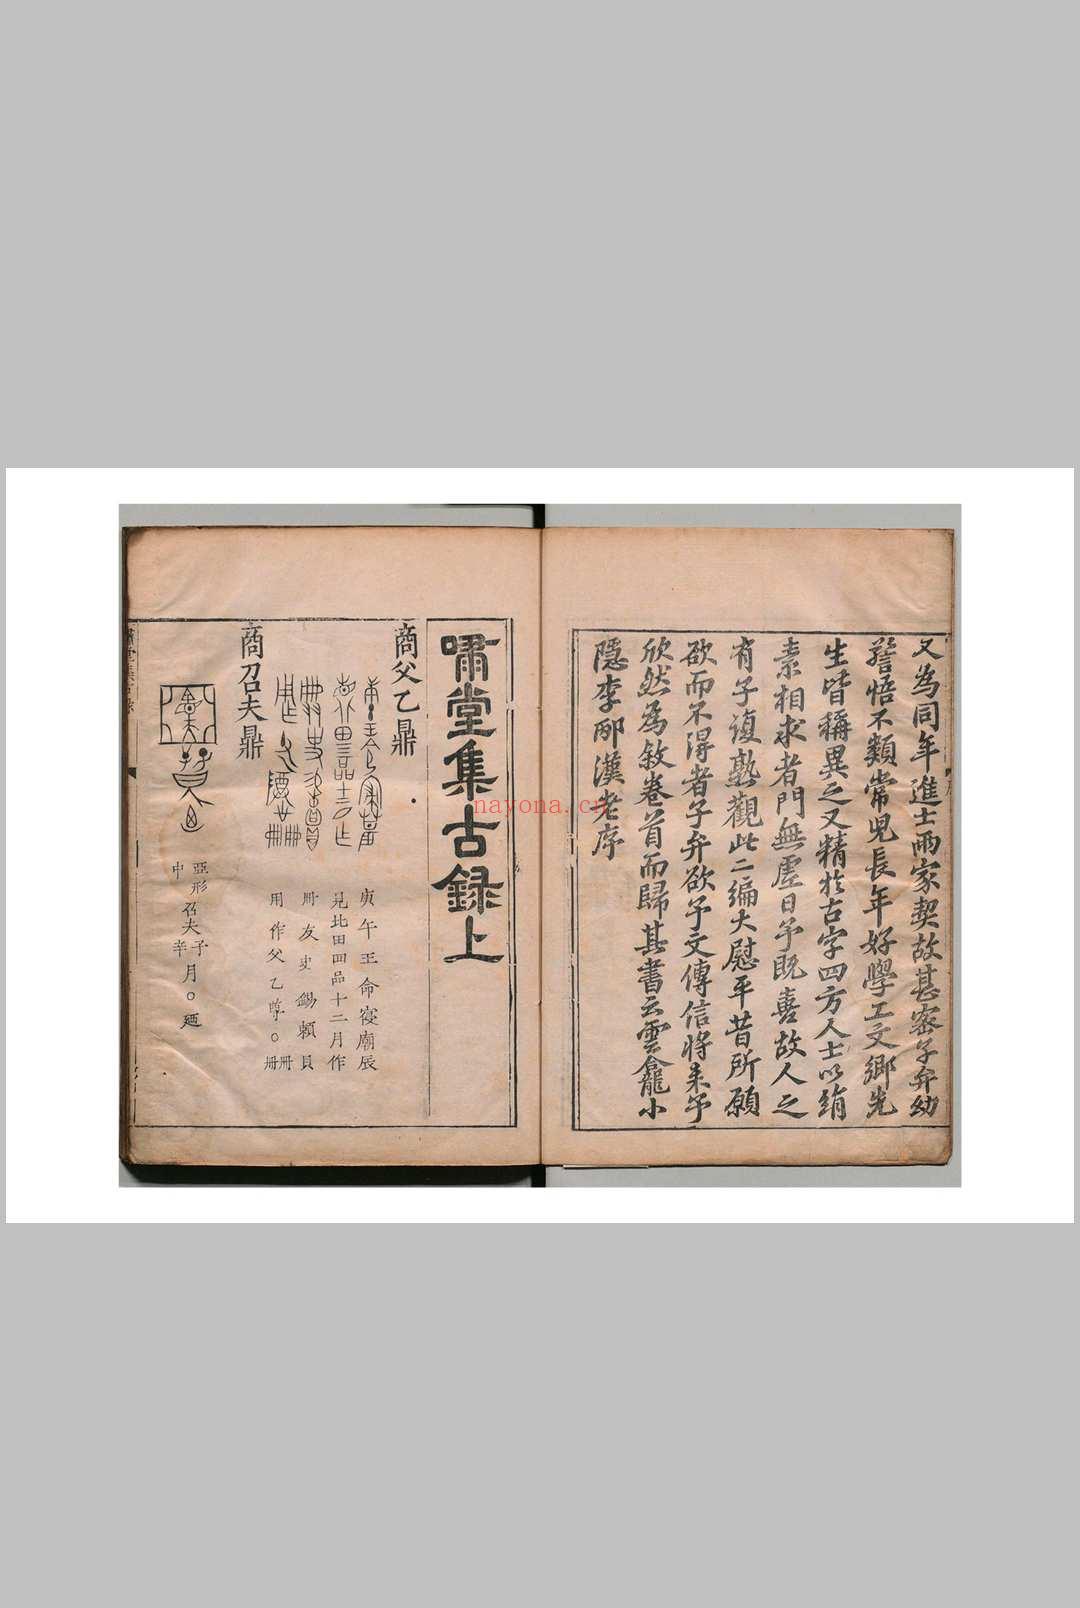 又為同年進士兩家契故甚密子弁幼
警悟不類常児長年好學工文鄉先
生皆稱異之又精於古字四方人士以絹
素相求者門無虛日予既喜故人之
有子復熟觀此二編大慰平昔所願
欲而不得者子弁欲予文傳信將来予
欣然為敘卷首而歸其書云雲龕小
隱李邴漢老序
嘯堂集古録上
商父乙鼎
庚午王命寑廟辰
見北田四品十二月作
冊友史錫賴貝
用作父乙尊○冊冊
商召夫鼎
亞形召夫子月○廼
中辛
nayona.cn